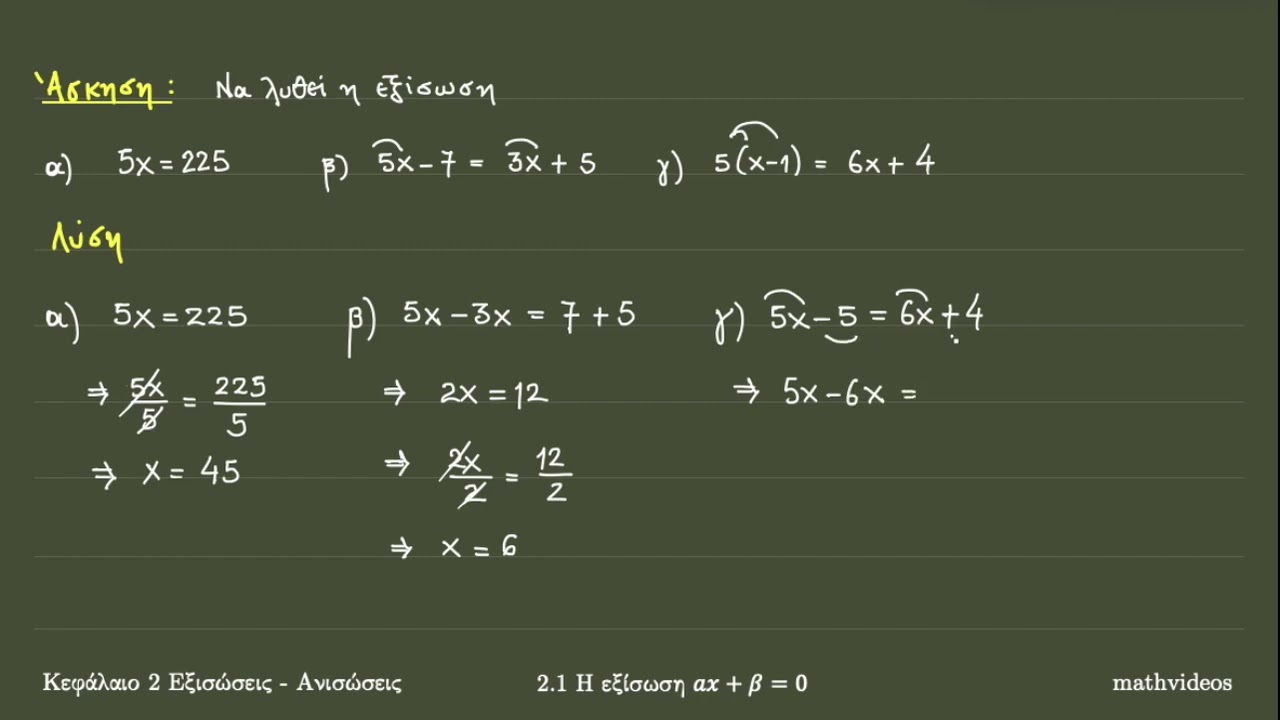 Άσκηση : Να λυθεί η εξίσωση
α) 5x = 225 β) 5x - 7 = 3x + 5 γ) 5(x-1) = 6x + 4
Λύση
α) 5x = 225 β) 5x - 3x = 7 + 5 γ) 5x - 5 = 6x + 4
⇒ 5x/5 = 225/5 ⇒ 2x = 12 ⇒ 5x - 6x =
⇒ x = 45 ⇒ 2x/2 = 12/2
⇒ x = 6
Κεφάλαιο 2 Εξισώσεις - Ανισώσεις 2.1 Η εξίσωση αx + β = 0 mathvideos